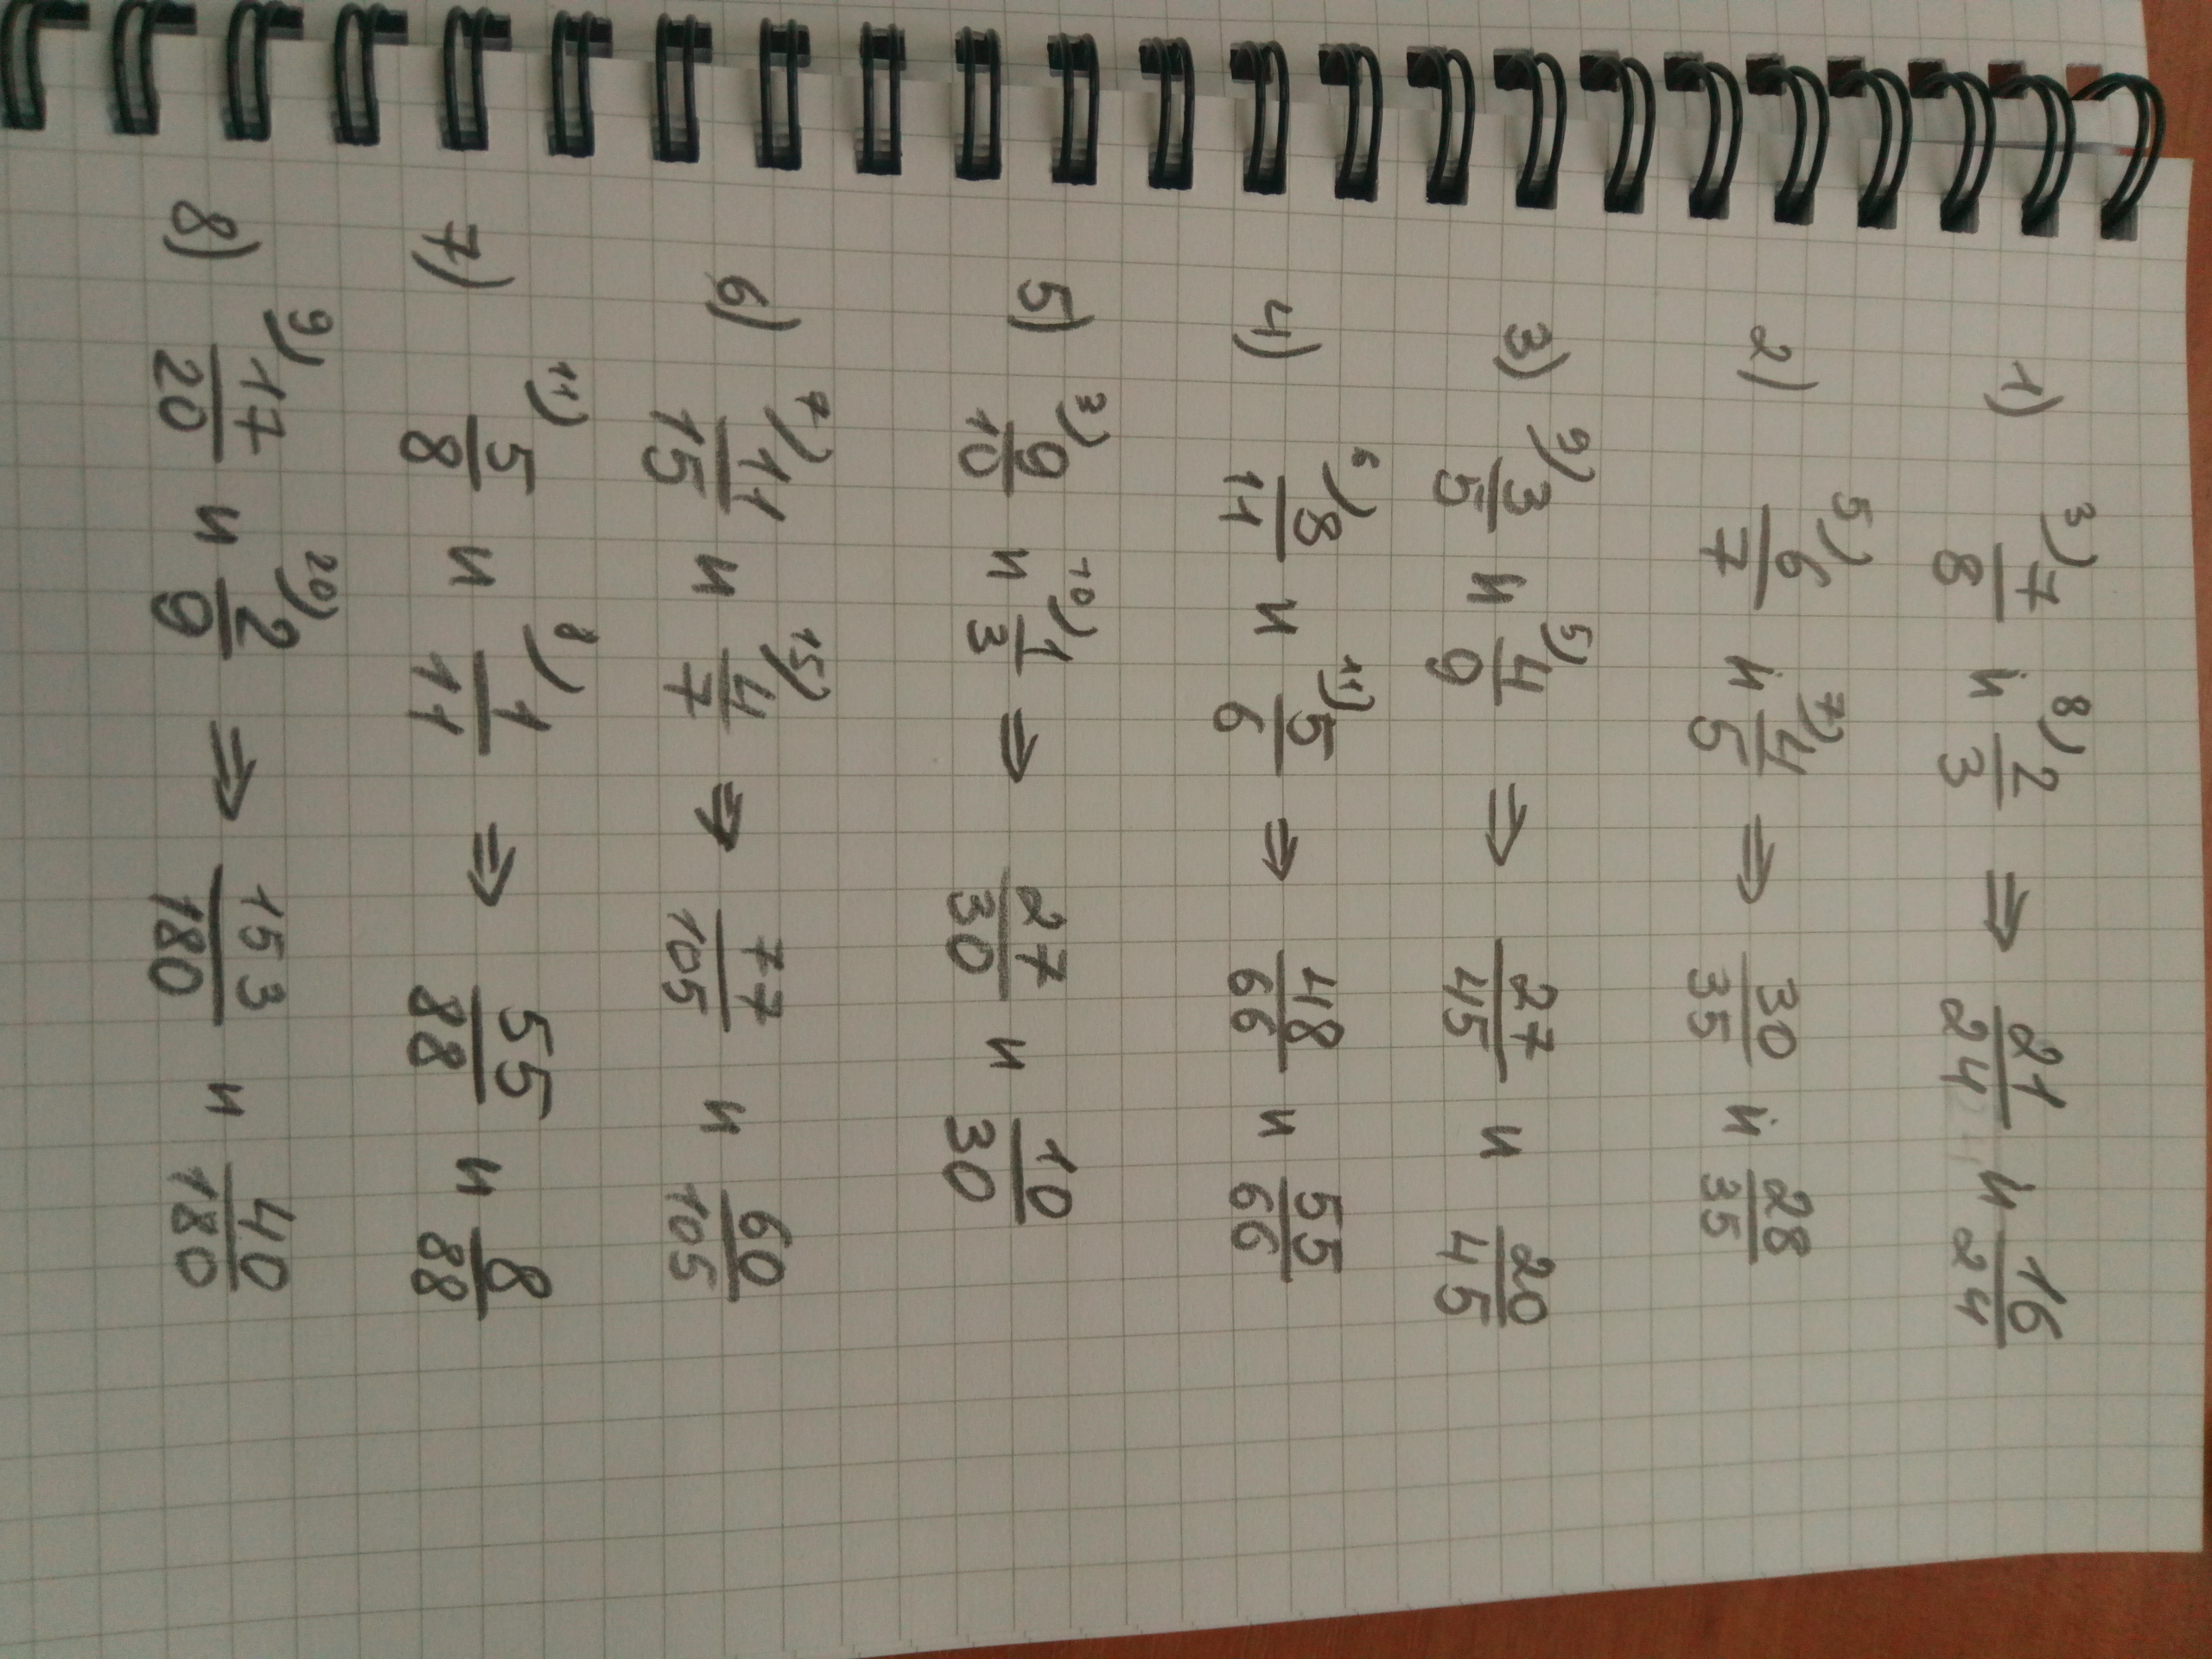 1) ³⁾7/8 и ⁸⁾2/3 ⇒ 21/24 и 16/24
2) ⁵⁾6/7 и ⁷⁾4/5 ⇒ 30/35 и 28/35
3) ⁹⁾3/5 и ⁵⁾4/9 ⇒ 27/45 и 20/45
4) ⁶⁾8/11 и ¹¹⁾5/6 ⇒ 48/66 и 55/66
5) ³⁾9/10 и ¹⁰⁾1/3 ⇒ 27/30 и 10/30
6) ⁷⁾11/15 и ¹⁵⁾4/7 ⇒ 77/105 и 60/105
7) ¹¹⁾5/8 и ⁸⁾1/11 ⇒ 55/88 и 8/88
8) ⁹⁾17/20 и ²⁰⁾2/9 ⇒ 153/180 и 40/180